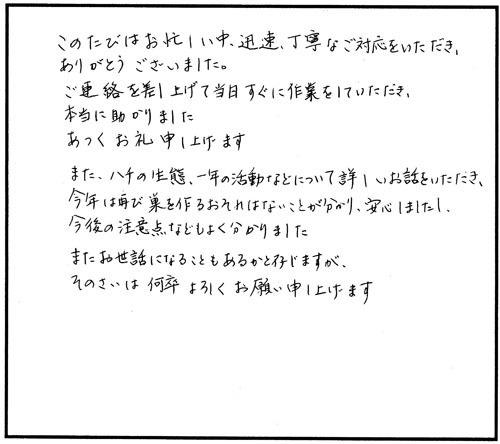 このたびはお忙しい中、迅速、丁寧なご対応をいただき、
ありがとうございました。
ご連絡を差し上げて当日すぐに作業をしていただき、
本当に助かりました
あつくお礼申し上げます
また、ハチの生態、一年の活動などについて詳しいお話をいただき、
今年は再び巣を作るおそれはないことが分かり、安心しましたし、
今後の注意点などもよく分かりました
またお世話になることもあるかと存じますが、
そのさいは何卒よろしくお願い申し上げます